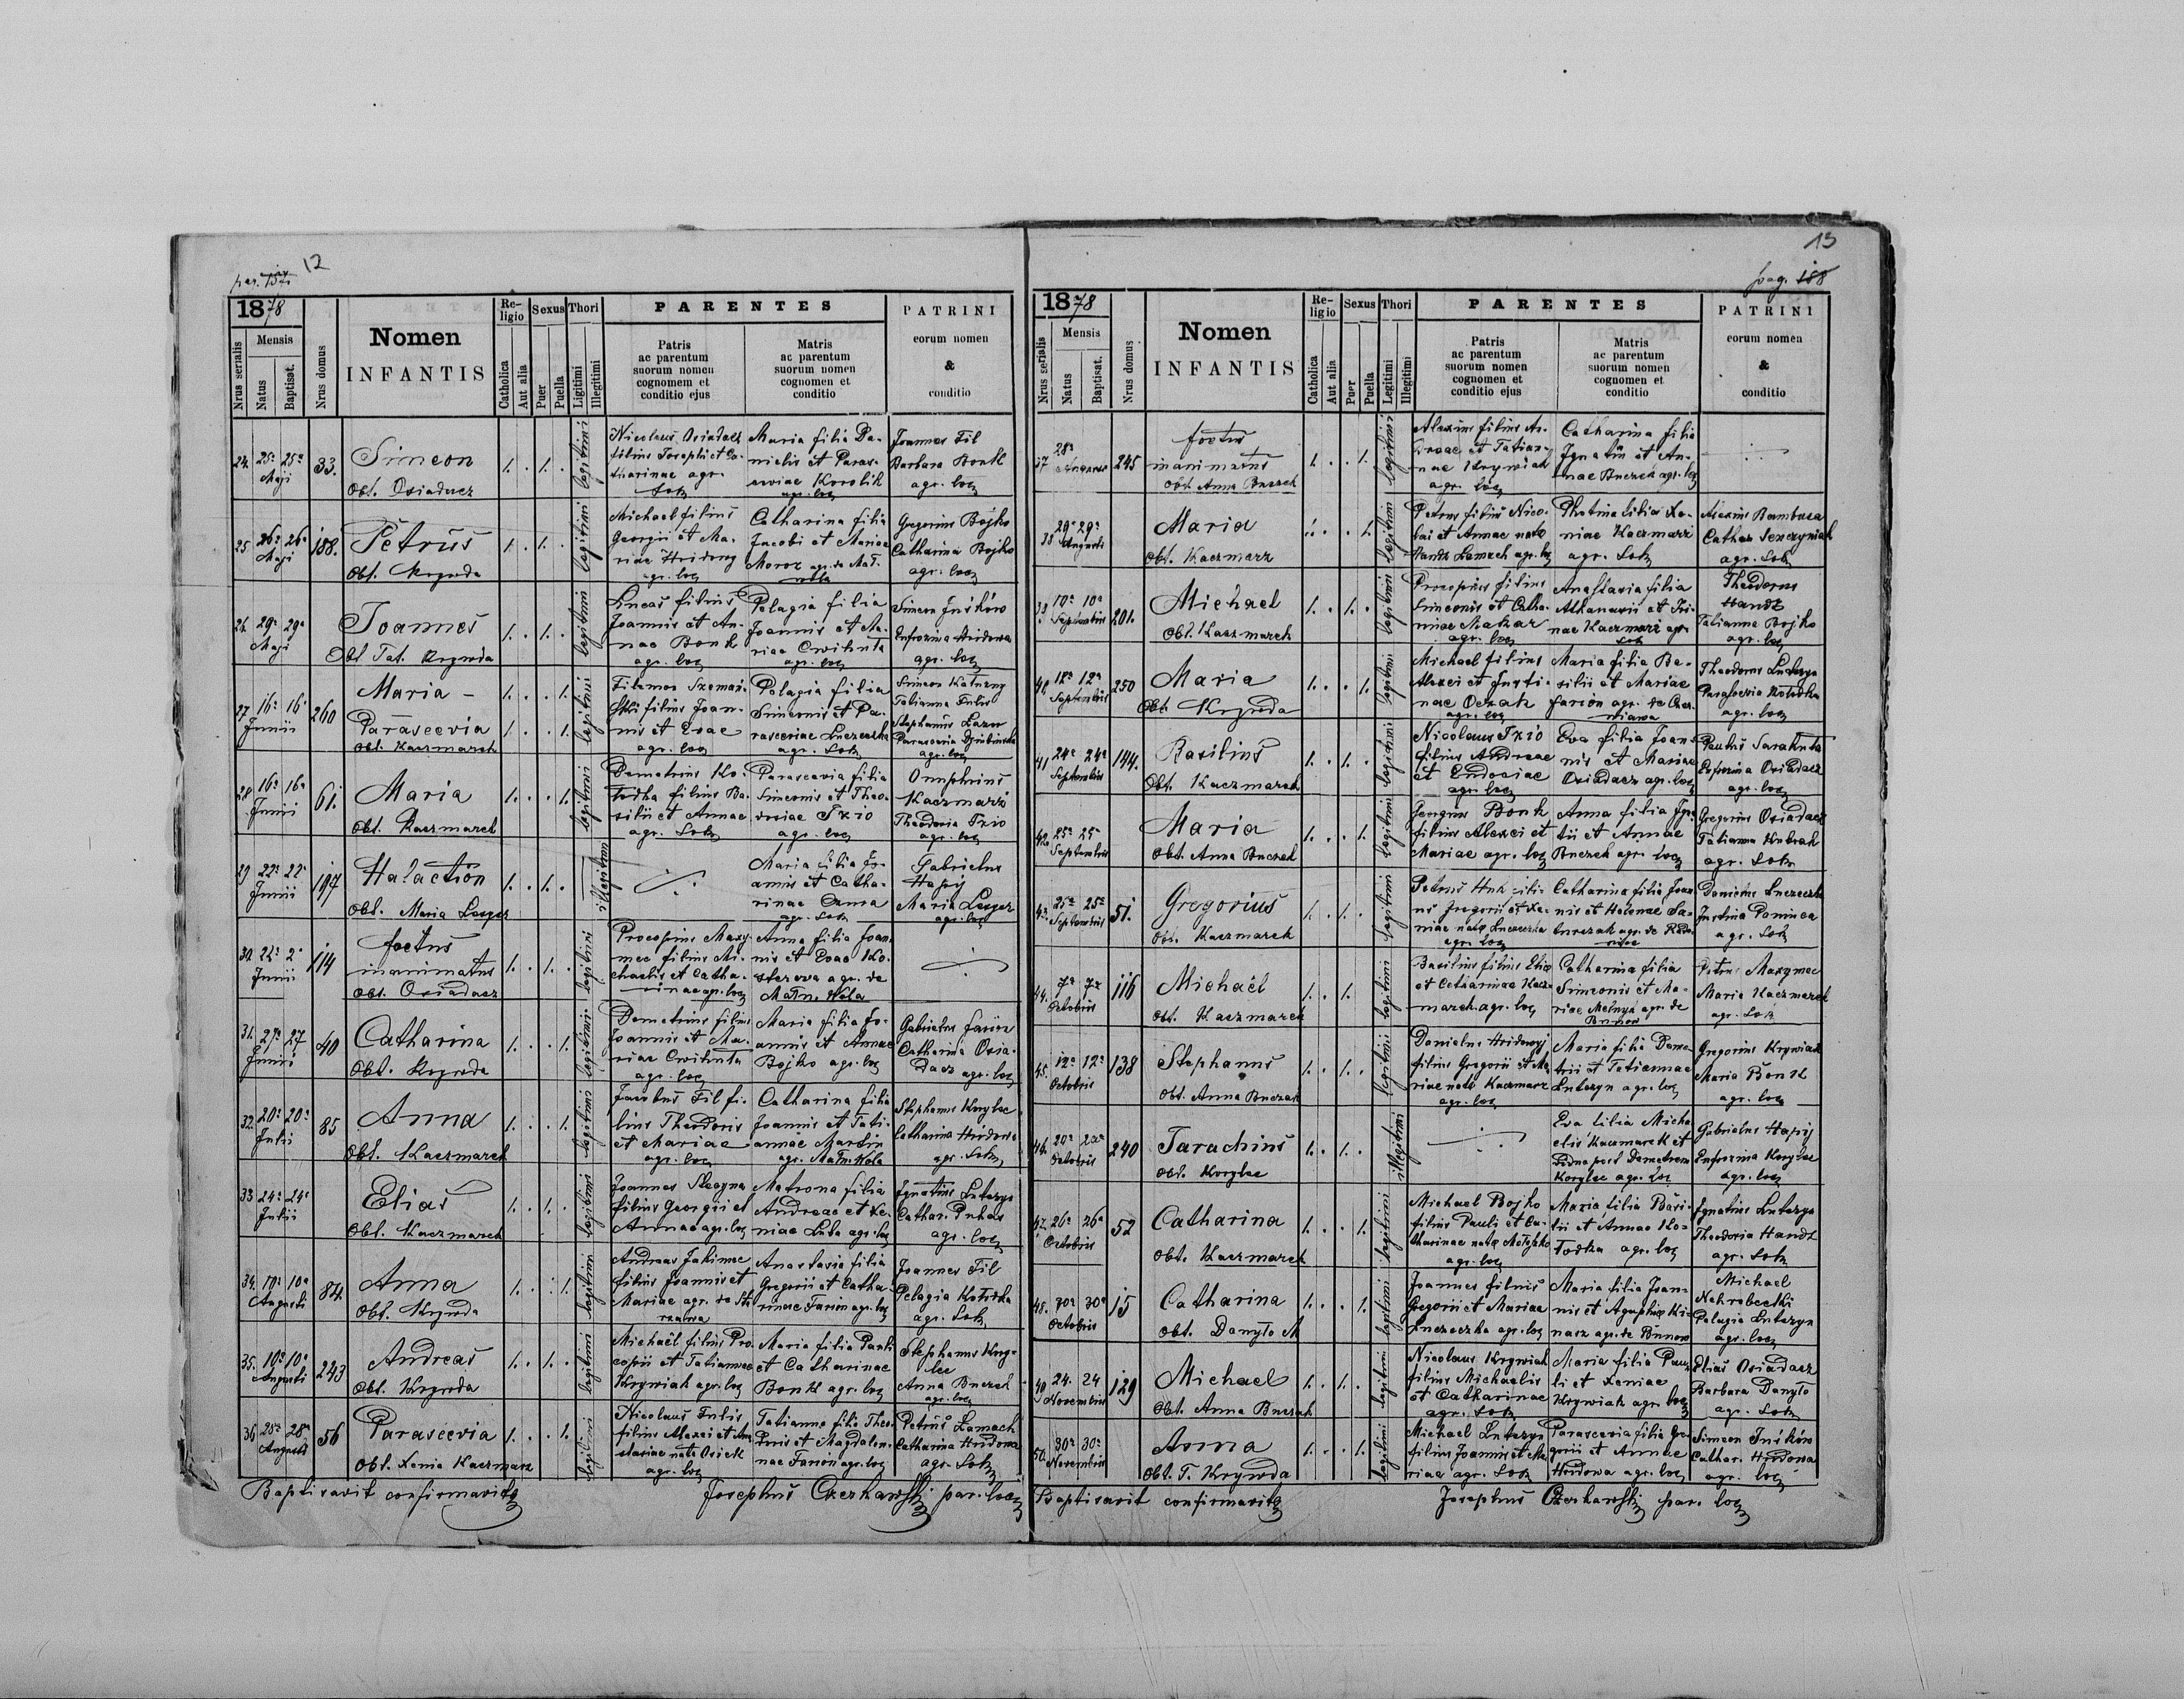 12
1878
Nrus serialis
Mensis
Natus
Baptisat.
Nrus domus
Nomen
INFANTIS
Religio
Catholica
Aut alia
Sexus
Puer
Puella
Thori
Ligitimi
Illegitimi
PARENTES
Patris
ac parentum
suorum nomen
cognomem et
conditio ejus
Matris
ac parentum
suorum nomen
cognomen et
conditio
PATRINI
eorum nomen
&
conditio
24. 25a 25a Maji 33.
Simeon
Obt. Osiadacz
legitimi
Nicolaus Osiadacz
filius Josephi et Ca-
tharinae agr.
Maria filia Da-
nielis et Paras-
ceviae Korolik
agr. loc
Joannes Fil
Barbara Bonk
agr. loc
25. 26a 26a Maji 188.
Petrus
Obt. Krzywda
legitimi
Michael filius
Georgii et Ma-
riae Hridowy
agr. loc
Catharina filia
Jacobi et Mariae
Moroz agr. de Mat.
Gregorius Bojko
Catharina Bojko
agr. loc
26. 29a 29a Maji
Joannes
Obt Tat. Krzywda
legitimi
Lucas filius
Joannis et An-
nae Bonk
agr. loc
Pelagia filia
Joannis et Ma-
riae Cwikuta
agr. loc
Simeon Juśków
Eufrozina Hridowa
agr. loc
27. 16a 16a Junii 260
Maria –
Parascevia
Obt. Kaczmarek
legitimi
filius Joan-
nis et Evae
agr. loc
Pelagia filia
Simeonis et Pa-
rasceviae Luczeczka
agr. loc
Simeon
Tatianna Fulis
Stephanus
Parascevia
agr. loc
28. 16a 16a Junii 61.
Maria
Obt. Kaczmarek
legitimi
Demetrius Ko-
todka filius Ba-
silii et Annae
agr. loc
Parascevia filia
Simeonis et Theo-
dosiae Trio
agr. loc
Onuphrius
Kaczmarz
Theodosia Trio
agr. loc
29 22a 22a Junii 197
Halaction
Obt. Maria Leszcz
illegitimi
Maria filia Jo-
annis et Catha-
rinae
agr. loc
Gabrielus
Hapij
Maria Leszcz
agr. loc
30. Junii 114
foetus
inanimatus
Obt. Osiadacz
legitimi
Procopius Maxy-
mec filius Mi-
chaelis et Catha-
rinae agr. loc
Anna filia Joan-
nis et Evae Ko-
agr. de
Matn. Wola
31. 27a 27 Junii 40
Catharina
Obt. Krzywda
legitimi
Demetrius filius
Joannis et Ma-
riae Cwikuta
agr. loc
Maria filia Jo-
annis et Annae
Bojko agr. loc
Gabrielus Farion
Catharina Osia-
dacz agr. loc
32. 20a 20a Julii 85
Anna
Obt. Kaczmarek
legitimi
Jacobus Fil fi-
lius Theodoris
et Mariae
agr. loc
Catharina filia
Joannis et Tati-
annae
agr. Matn. Wola
Stephanus Korylec
Catharina Hridowa
agr. loc
33 24a 24a Julii
Elias
Obt. Kaczmarek
legitimi
Joannes
filius Georgii et
Annae agr. loc
Matrona filia
Andreae et Xe-
niae Luba agr. loc
Ignatius Lutczyn
Cathar. Puhacz
agr. loc
34. 10a 10a Augusti 84
Anna
Obt. Krzywda
legitimi
Andreas Jakimec
filius Joannis et
Mariae agr. de
Anastasia filia
Gregorii et Catha-
rinae Farion agr. loc
Joannes Fil
Pelagia Kotodka
agr. loc
35. 10a 10a Augusti 243
Andreas
Obt. Krzywda
legitimi
Michaël filius Pro-
copii et Tatiannae
Krzywiak agr. loc
Maria filia Pauli
et Catharinae
Bonk agr. loc
Stephanus Kory-
lec
Anna Buczek
agr. loc
36 28a 28a Augusti 56
Parascevia
Obt. Xenia Kaczmarz
legitimi
Nicolaus Fulis
filius Alexei et
agr. loc
Tatianna filia Theo-
et Magdale-
nae Farion agr. loc
Petrus Łamach
Catharina Hridowa
agr. loc
Baptisavit confirmavitq
Josephus Czerkawski par. loc
13
pag. 188
1878
Nrus serialis
Mensis
Natus
Baptisat.
Nrus domus
Nomen
INFANTIS
Religio
Catholica
Aut alia
Sexus
Puer
Puella
Thori
Legitimi
Illegitimi
PARENTES
Patris
ac parentum
suorum nomen
cognomem et
conditio ejus
Matris
ac parentum
suorum nomen
cognomen et
conditio
PATRINI
eorum nomen
&
conditio
37 28a 245
foetus
inanimatus
Obt. Anna Buczek
legitimi
Alexius filius An-
dreae et Tatian-
nae Krywiak
agr. loc
Catharina filia
Ignatii et An-
nae Buczek agr. loc
38 29a 29a Augusti
Maria
Obt. Kaczmarz
legitimi
Petrus filius Nico-
lai et Annae nata
Handz Łamach agr. loc
Photina filia Xe-
niae Kaczmarz
agr. loc
Alexius Bambusa
Cathar Senczyniak
agr. loc
39 10a 10a Septembris 201.
Michael
Obt. Kaczmarek
legitimi
Procopius filius
Simeonis et Catha-
rinae Makar
agr. loc
Anastasia filia
Athanasii et Iri-
nae Kaczmarz agr.
loc
Theodorus
Handz
Tatianna Bojko
agr. loc
40. 12a 12a Septembris 250
Maria
Obt. Krzywda
legitimi
Michael filius
Alexei et Justi-
nae
agr. loc
Maria filia Ba-
silii et Mariae
Farion agr. de
Theodorus Lutczyn
Parascevia Kotodka
agr. loc
41 24a 24a Septembris 144.
Basilius
Obt. Kaczmarek
legitimi
Nicolaus Trio
filius Andreae
et Eudociae
agr. loc
Eva filia Joan-
nis et Mariae
Osiadacz agr. loc
Paulus Sarakuta
Eufrozina Osiadacz
agr. loc
42. 25a 25a Septembris
Maria
Obt. Anna Buczek
legitimi
Georgius Bonk
filius Alexei et
Mariae agr. loc
Anna filia Igna-
tii et Annae
Buczek agr. loc
Gregorius Osiadacz
Tatianna
agr. loc
43. 25a 25a Septembris 51.
Gregorius
Obt. Kaczmarek
legitimi
Petrus Huk fili-
us Gregorii et Xe-
niae nata Luczeczka
agr. loc
Catharina filia Joan-
nis et Helenae
agr. de
Danielus Luczeczka
Justina Dominca
agr. loc
44. 7a 7a Octobris 116
Michaël
Obt. Kaczmarek
legitimi
Basilius filius Eliae
et Catharinae Kacz-
marek agr. loc
Catharina filia
Simeonis et Ma-
riae Melnyk agr. de
Bunow
Petrus Maxymec
Maria Kaczmarek
agr. loc
45. 12a 12a Octobris 138
Stephanus
Obt. Anna Buczak
legitimi
Danielus Hridowyj
filius Gregorii et Ma-
riae nata Kaczmarz
agr. loc
Maria filia Deme-
trii et Tatiannae
Lutczyn agr. loc
Gregorius Krywiak
Maria Bonk
agr. loc
46. 20a 20a Octobris 240
Tarachius
Obt. Korylec
illegitimi
Eva filia Micha-
elis Kaczmarek et
vidua post Demetrem
Korylec agr. loc
Gabrielus Hapij
Eufrozina Korylec
agr. loc
47. 26a 26a Octobris 52
Catharina
Obt. Kaczmarek
legitimi
Michael Bojko
filius Pauli et Ca-
tharinae nata
agr. loc
Maria filia Basi-
lii et Annae Ko-
todka agr. loc
Ignatius Lutczyn
Theodosia Handz
agr. loc
48. 30a 30a Octobris 15
Catharina
Obt. Danyło M
legitimi
Joannes filius
Gregorii et Mariae
Luczeczka agr. loc
Maria filia Joan-
nis et Agaphiae Ki-
nasz agr. de Bunow
Michael
Nehrebecki
Pelagia Lutczyn
agr. loc
49 24. 24 Novembris 129
Michael
Obt. Anna Buczak
legitimi
Nicolaus Krywiak
filius Michaelis
et Catharinae
agr. loc
Maria filia Pau-
li et Xeniae
Krywiak agr. loc
Elias Osiadacz
Barbara Danyło
agr. loc
50. 30a 30a Novembris
Anna
Obt. T. Krzywda
legitimi
Michael Lutczyn
filius Joannis et Ma-
riae agr. loc
Parascevia filia Gre-
gorii et Annae
Hridowa agr. loc
Simeon Juśków
Cathar. Hridowa
agr. loc
Baptisavit confirmavitq
Josephus Czerkawski par. loc